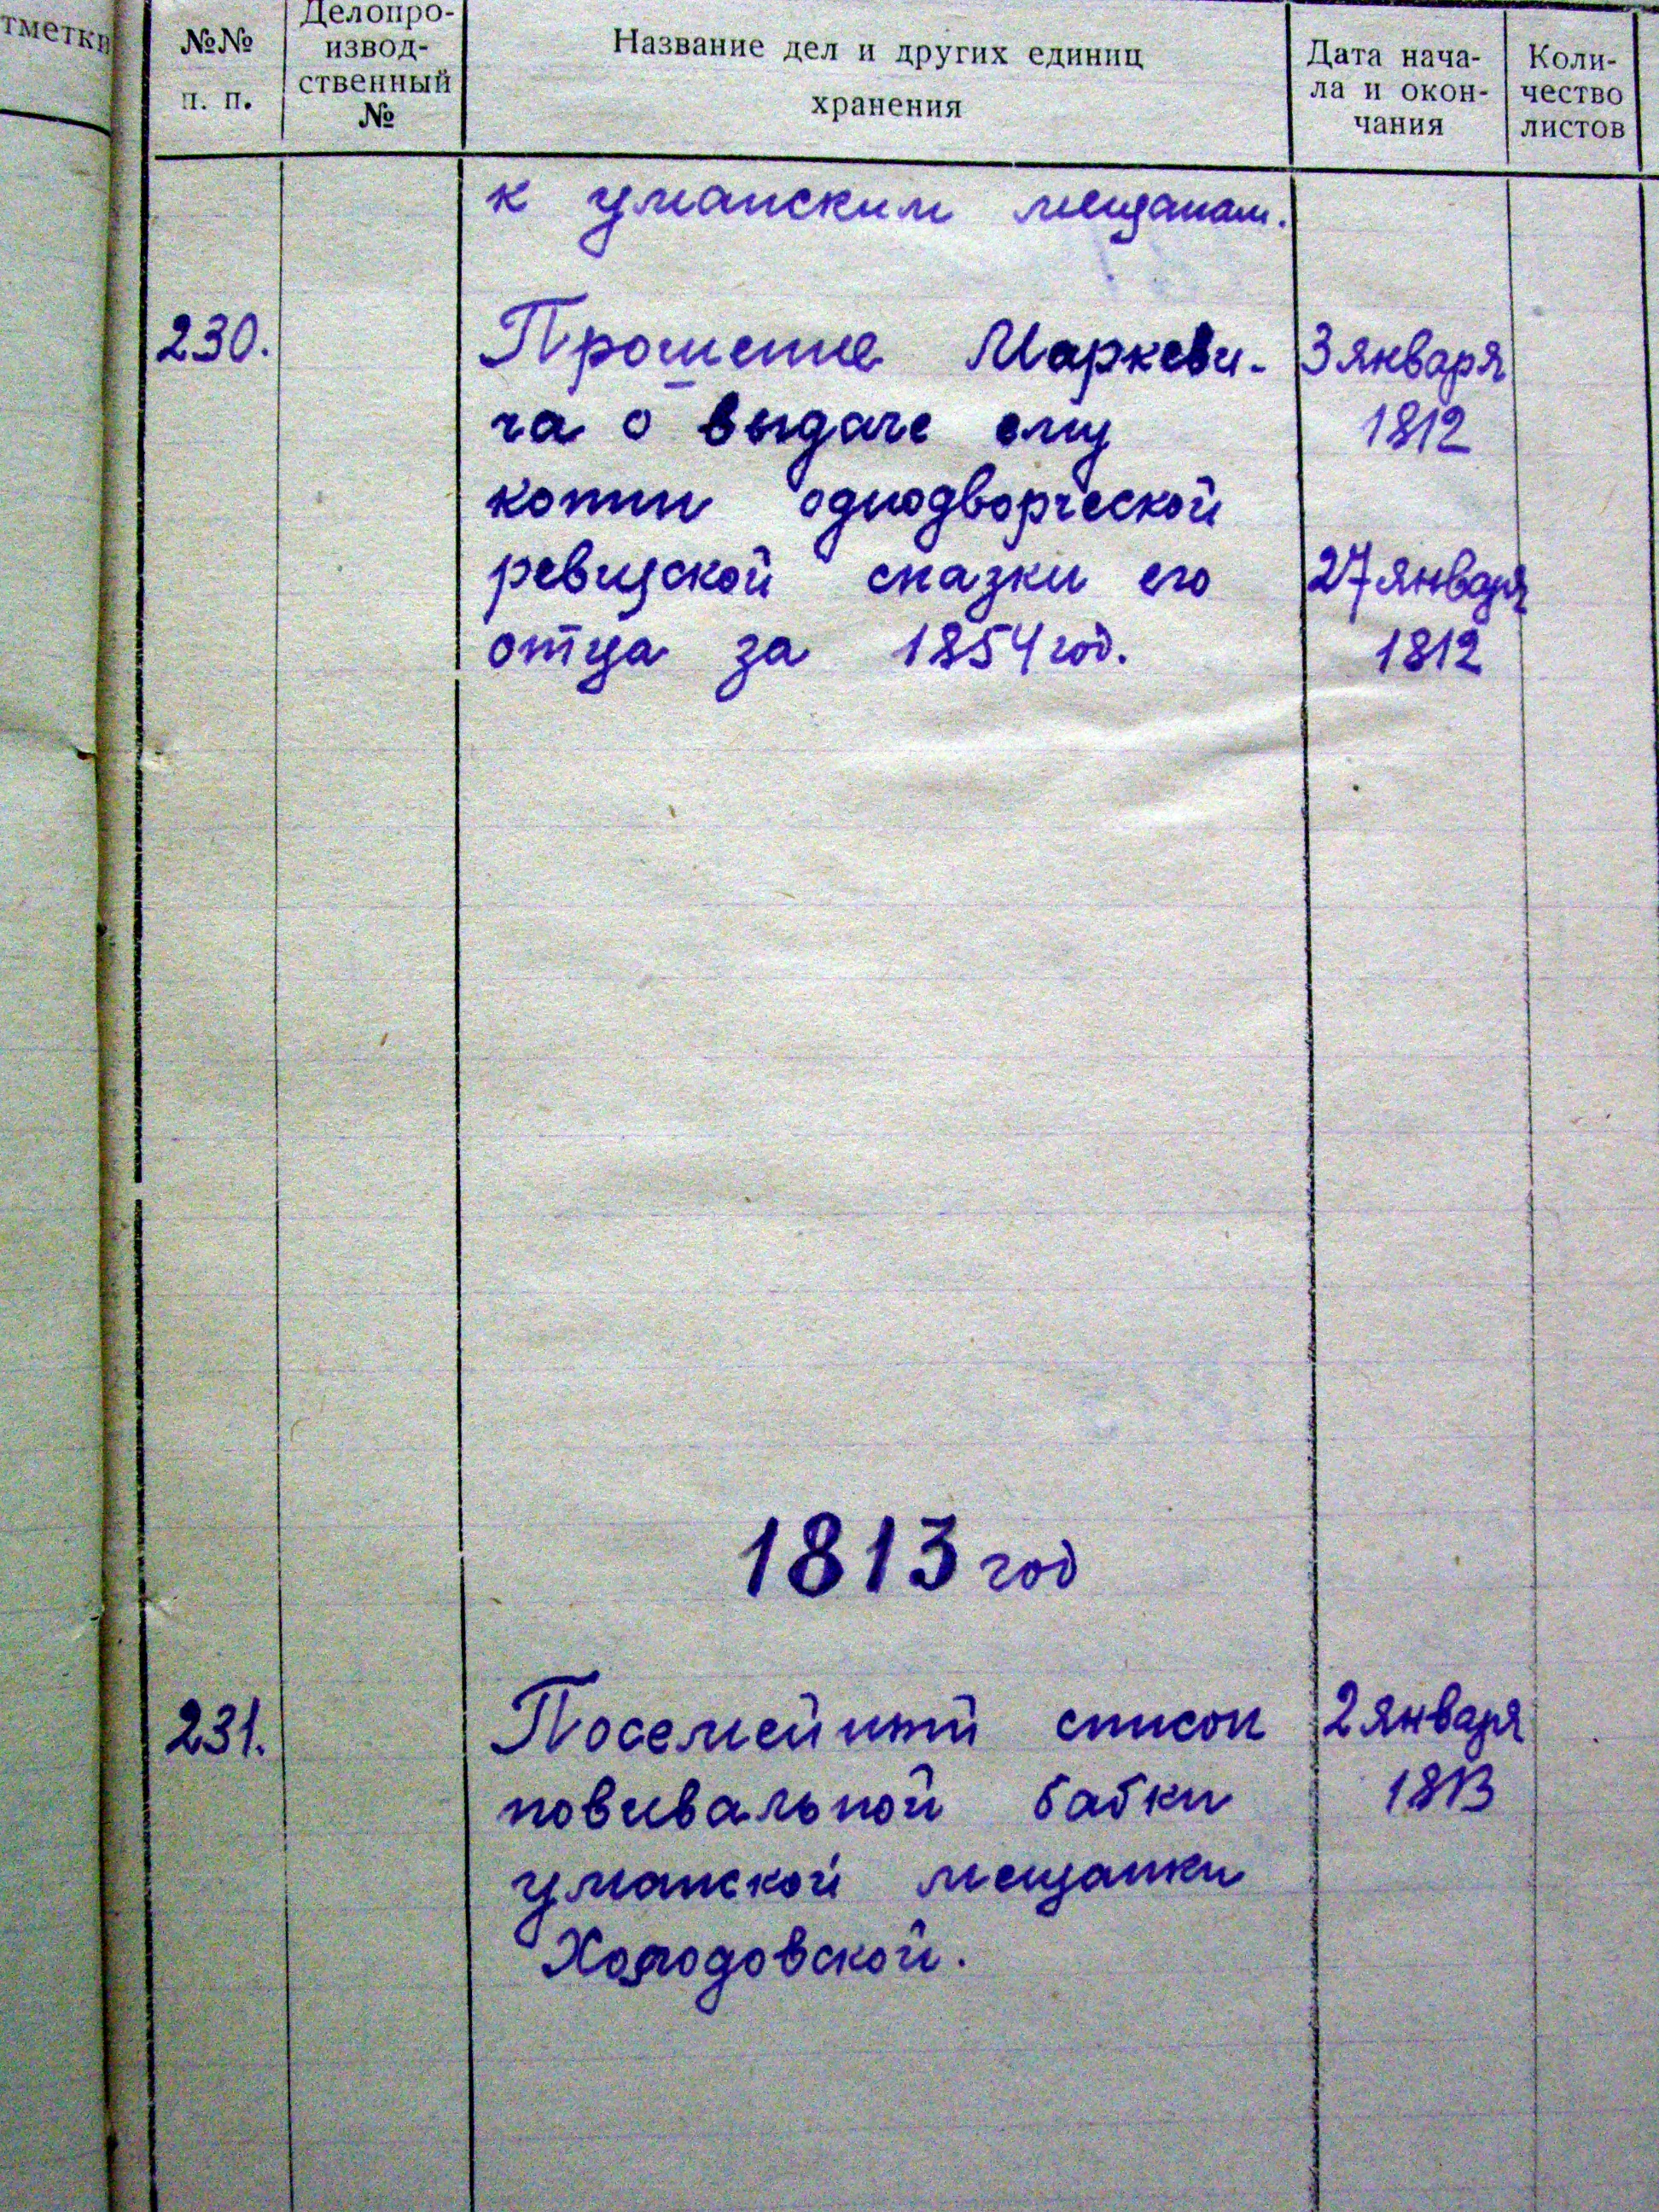 тметки
№№ п. п.
Делопро-
извод-
ственный
№
Название дел и других единиц
хранения
Дата нача-
ла и окон-
чания
Коли-
чество
листов
к уманским мещанам.
230.
Прошение Маркеви-
ча о выдаче ему
копии однодворческой
ревизской сказки его
отца за 1854 год.
3 января
1812
27 января
1812
1813 год
231.
Посемейный список
повивальной бабки
уманской мещанки
Холодовской.
2 января
1813